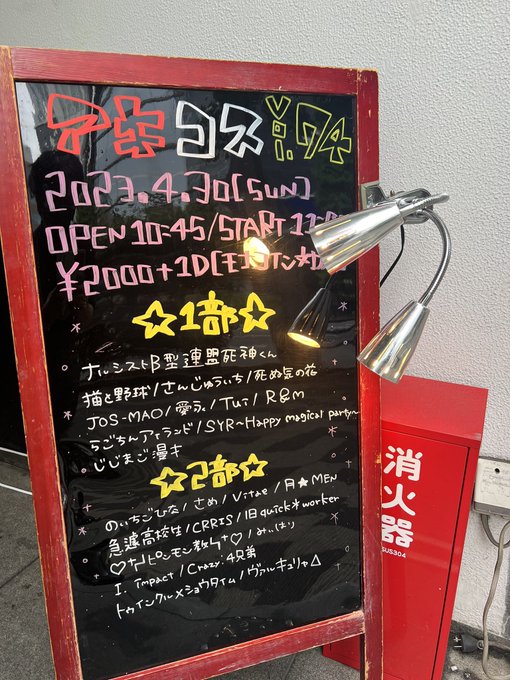 アキコスV:.74
2023.4.30[SUN]
OPEN10:45/START 11:
¥2000+1D
☆1部☆
ナルシストB型連盟死神くん
猫と野球/さんじゅういち/死ぬ気の花
JOS-MAO/愛う。/Tui/R&M
らごちんアイランド/SYR~Happy magical party~
じじまご漫才
☆2部☆
のいちごひな/さめ/Vitae/月★MEN
急遽高校生/CRRIS/旧quick*worker
♡ナルピンモン教♡/みぃはり
I. impact/Crazy.4兄弟
トゥインクル×ショウタイム/ヴァルキュリャ△
消火器
SUS304